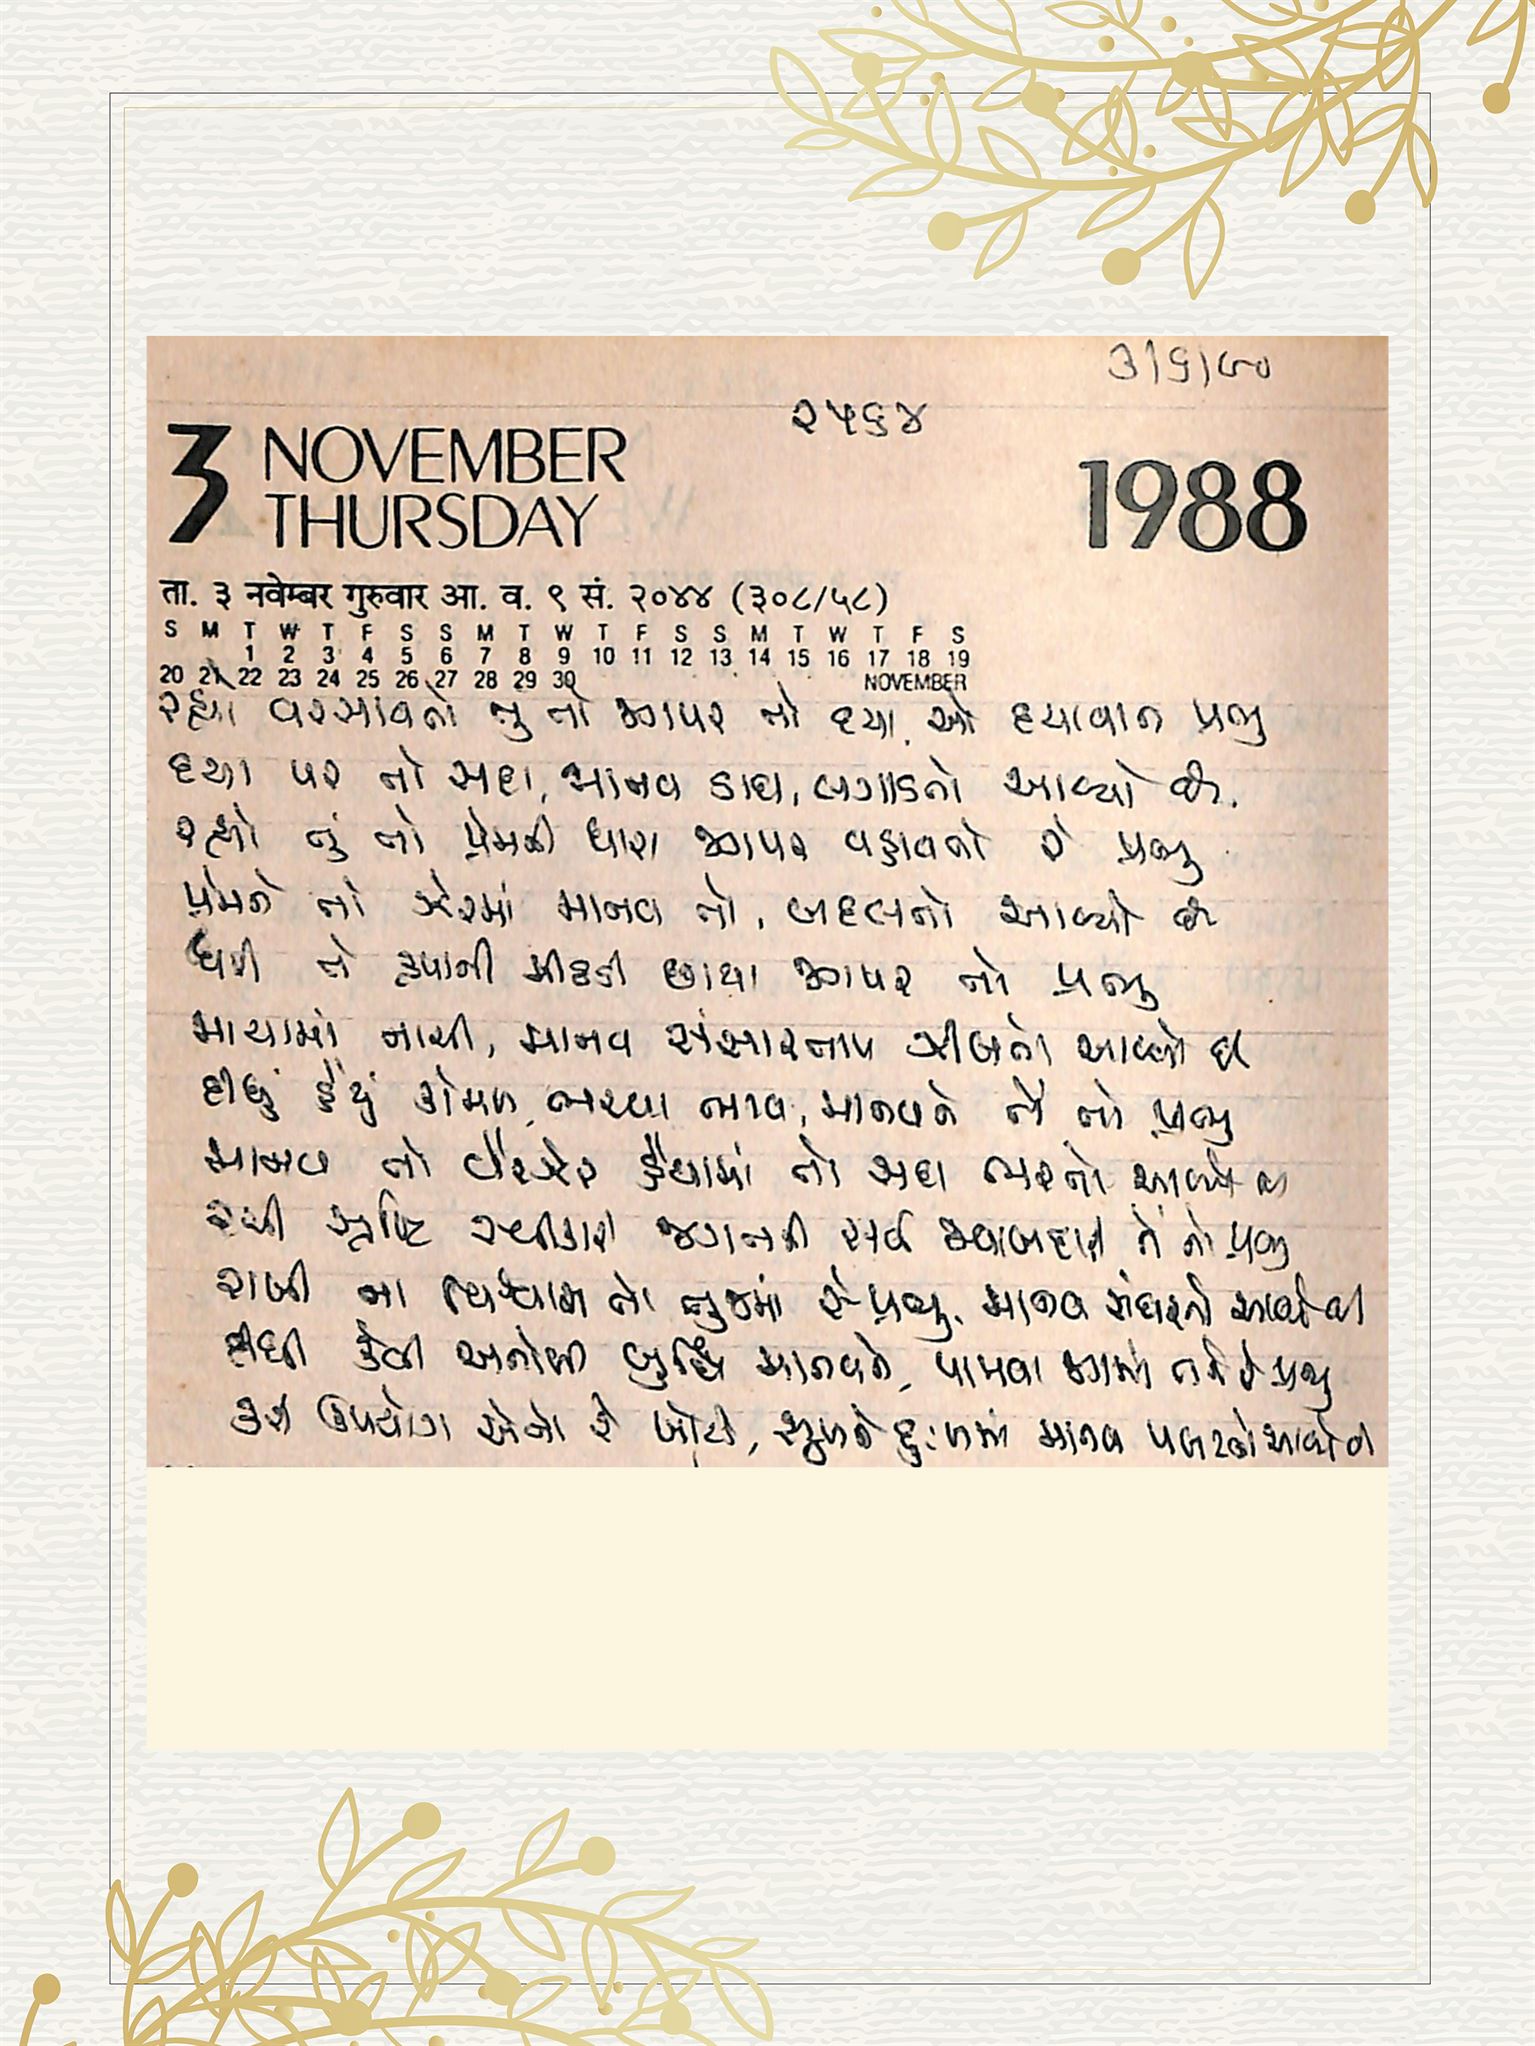 ૩।૬।૯૦
૨૫૬૪
3 NOVEMBER
THURSDAY
1988
ता. ३ नवेम्बर गुरुवार आ. व. ९ सं. २०४४ (३०८/५८)
S M T W T F S S M T W T F S S M T W T F S
1 2 3 4 5 6 7 8 9 10 11 12 13 14 15 16 17 18 19
20 21 22 23 24 25 26 27 28 29 30 NOVEMBER
રહ્યા વરસાવતો તું તો જગપર તો દયા, ઓ દયાવાન પ્રભુ
દયા પર તો સદા, માનવ ડાઘ, લગાડતો આવ્યો છે.
રહ્યો તું તો પ્રેમની ધારા જગપર વહાવતો રે પ્રભુ
પ્રેમને તો ઝેરમાં માનવ તો, બદલતો આવ્યો છે
ધરી તેં કૃપાની મીઠડી છાયા જગપર તો પ્રભુ
માયામાં નાચી, માનવ સંસારતાપ ઝીલતો આવ્યો છે
દીધું હૈયું કોમળ, ભરવા ભાવ, માનવને તેં તો પ્રભુ
માનવ તો વૈરઝેર હૈયામાં તો સદા ભરતો આવ્યો છે
રચી સૃષ્ટિ સ્વીકારી જગતની સર્વ જવાબદારી તેં તો પ્રભુ
રાખી ના વિશ્વાસ તો તુજમાં રે પ્રભુ, માનવ સંઘરતો આવ્યો છે
દીધી કેવી અનોખી બુદ્ધિ માનવને, પામવા જગમાં તને રે પ્રભુ
કરી ઉપયોગ એનો રે ખોટો, સુખને દુઃખમાં માનવ પલટતો આવ્યો છે